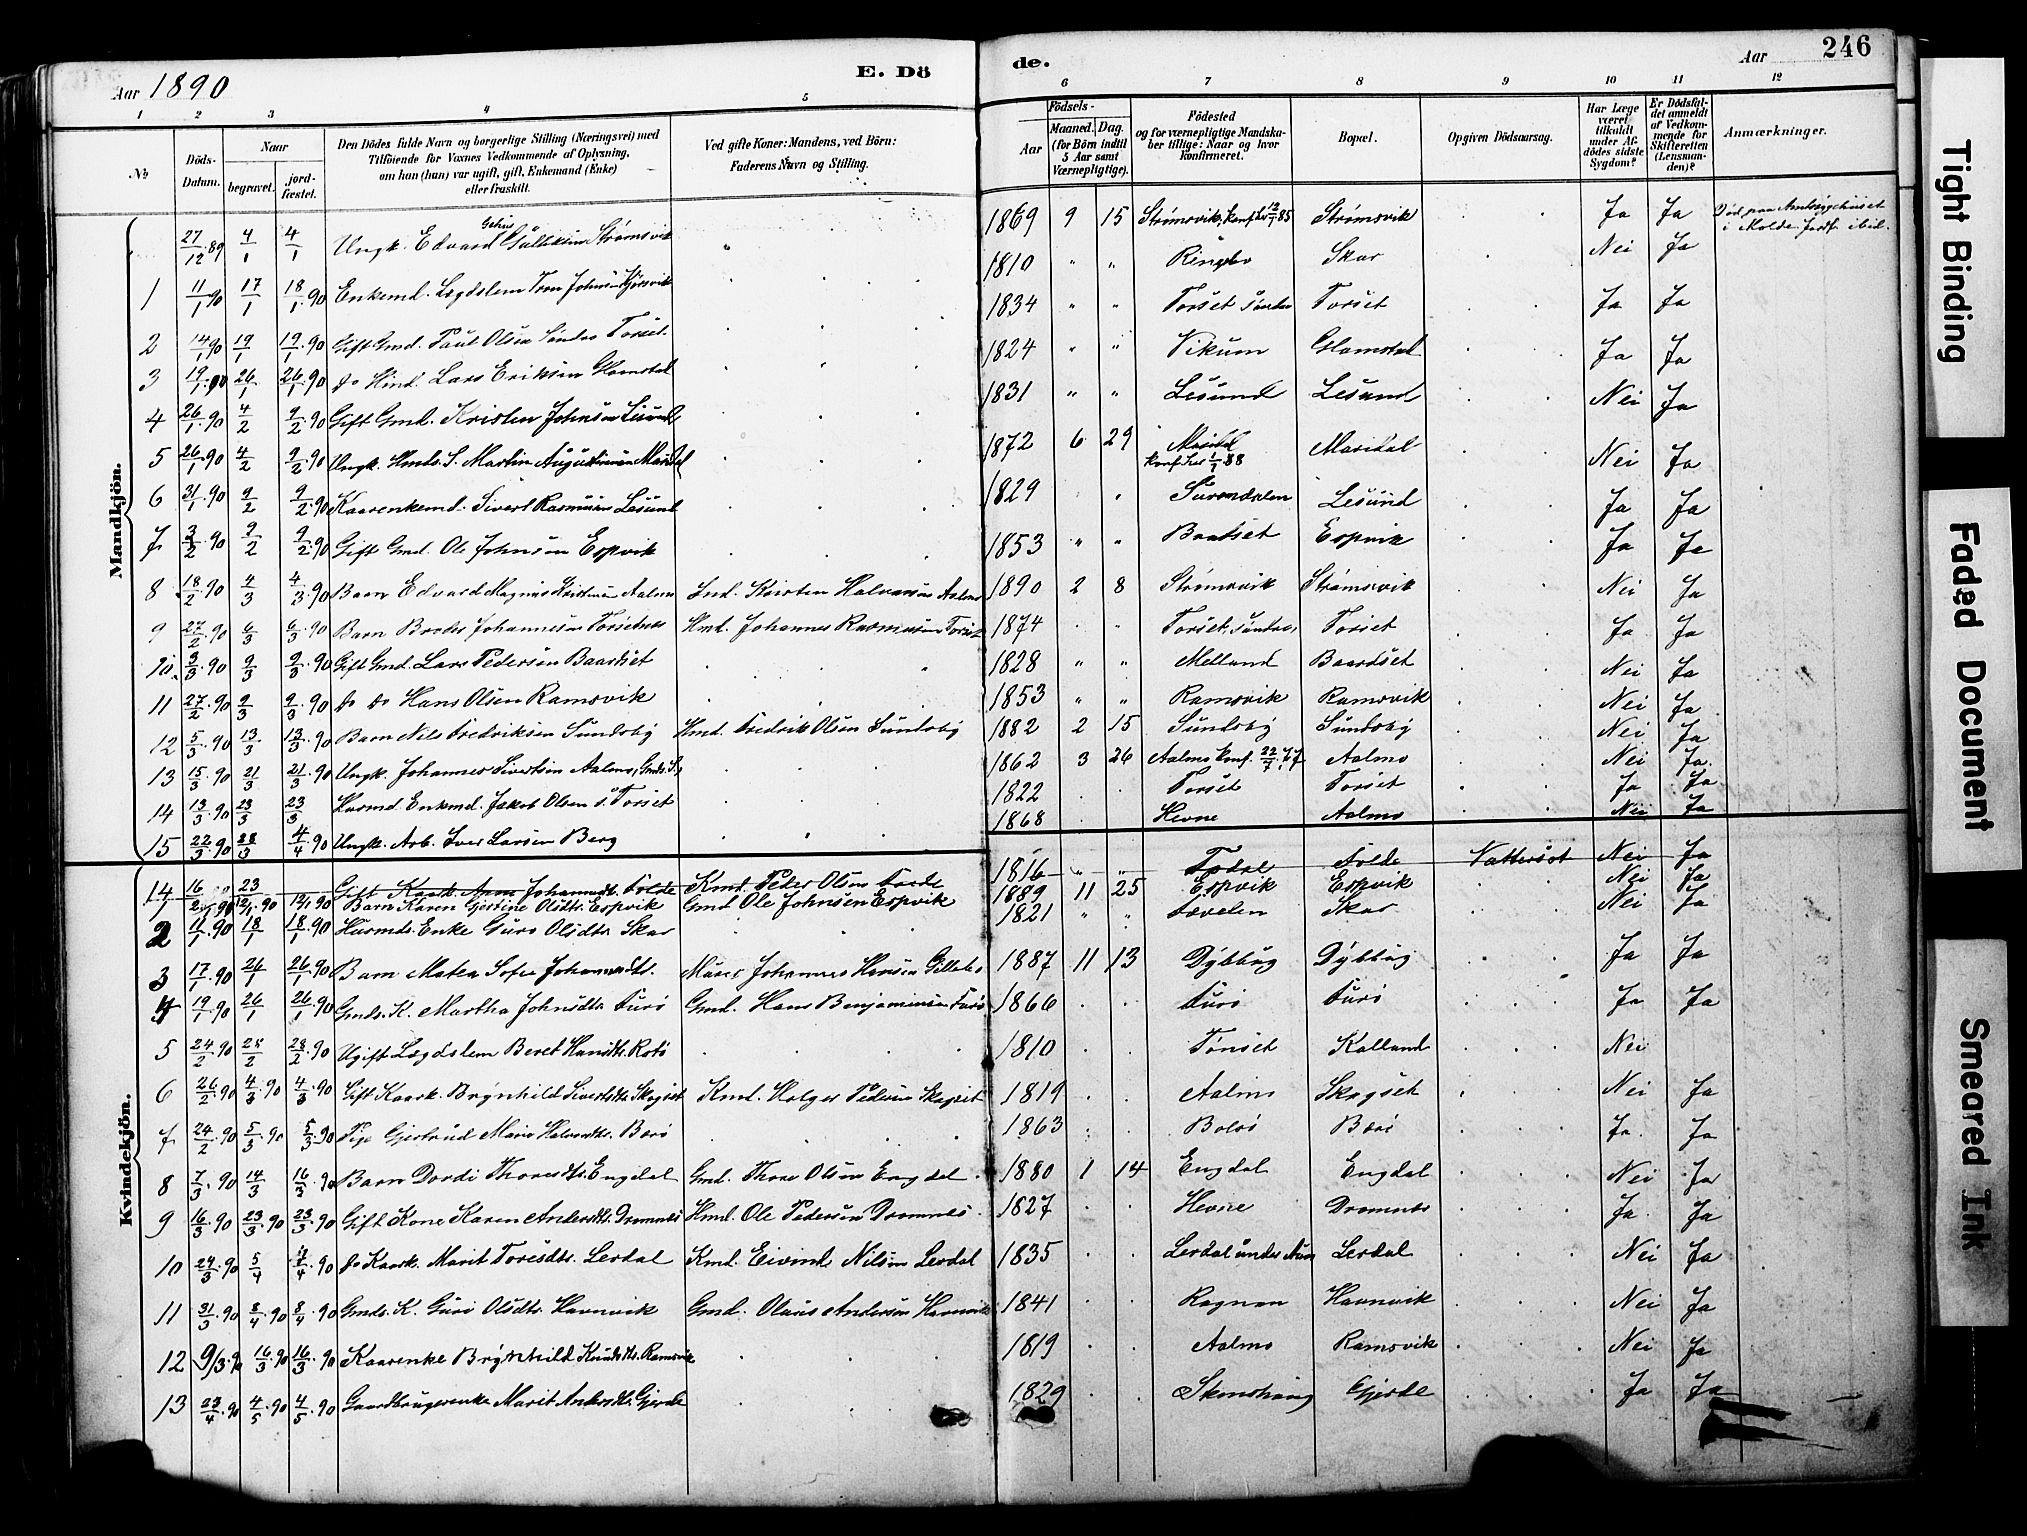 Aar 1890
E. Dö
de.
Aar
246
1 2 3 4 5 6 7 8 9 10 11 12
№
Döds-Datum.
Naar
begravet.
jord-fæstet.
Den Dödes fulde Navn og borgerlige Stilling (Næringsvei) med
Tilföiende for Voxnes Vedkommende af Oplysning,
om han (hun) var ugift, gift, Enkemand (Enke)
eller fraskilt.
Ved gifte Koner: Mandens, ved Börn:
Faderens Navn og Stilling.
Födsels-
Aar
Maaned. Dag.
(for Börn indtil
5 Aar samt
Værnepligtige).
Födested
og for værnepligtige Mandska-
ber tillige: Naar og hvor
konfirmeret.
Bopæl.
Opgiven Dödsaarsag.
Har Læge
været
tilkaldt
under Af-
dödes sidste
Sygdom?
Er Dödsfal-
det anmeldt
af Vedkom-
mende for
Skifteretten
(Lensman-
den)?
Anmærkninger.
Mandkjön.
27/12 89 4/1 4/1 Ungk. Edvard Gulliksen Strømsvik 1869 9 15 Strømsvik, Konf. 85 Strømsvik Ja Ja
i Molde
1 11/1 90 17/1 18/1 90 Enkemd. Lægdslem 1810 Ringbo Skar Nei Ja
2 14/1 90 19/1 19/1 90 Gift Gmd. Paul Olsen Torset 1834 Torset Torset Ja Ja
3 19/1 90 26/1 26/1 90 do Lars Eriksen Glamstal 1824 Vikum Glamstal Ja Ja
4 26/1 90 4/2 9/2 90 Gift Gmd. Kristen Johnsen Lesund 1831 Lesund Lesund Nei Ja
5 26/1 90 4/2 9/2 90 Ungk. Martin 1872 6 29 Konf. 88 Nei Ja
6 31/1 90 9/2 9/2 90 Kaarenkemd. Sivert Rasmusen Lesund 1829 Surendalen Lesund Ja Ja
7 3/2 90 9/2 9/2 90 Gift Gmd. Ole Johnsen Espvik 1853 Espvik Ja Ja
8 18/2 90 4/3 4/3 90 Barn Edvard Magnus Aalmo Ind. Kirsten Halvorsen Aalmo 1890 2 8 Strømsvik Strømsvik Nei Ja
9 27/2 90 6/3 6/3 90 Barn Johannesen Hmd. Johannes Rasmusen Torset 1874 Torset Torset Ja Ja
10 3/3 90 9/3 9/3 90 Gift Gmd. Lars Pedersen Baardset 1828 Melland Baardset Nei Ja
11 27/2 90 9/3 9/3 90 do do Hans Olsen Ramsvik 1853 Ramsvik Ramsvik Nei Ja
12 5/3 90 13/3 13/3 90 Barn Nils Fredriksen Sundsby Hmd. Fredrik Olsen Sundsby 1882 2 15 Sundsby Sundsby Nei Ja
13 15/3 90 21/3 21/3 90 Ungk. Johannes Sivertsen Aalmo, Gmds. S. 1862 3 26 Aalmo Konf. Aalmo Nei Ja
14 13/3 90 23/3 23/3 Enkmd. Jakob Olsen Torset 1822 Torset Torset Ja Ja
15 22/3 90 28/3 4/4 90 Ungk. Arb. Iver Larsen Berg 1868 Hevne Aalmo Nei Ja
Kvindekjön.
14 16 23 Gift Johannesdt. Folde Kmd. Peder Olsen Folde 1816 Todal Folde Vattersot Nei Ja
1 90 12/1 90 12/1 90 Barn Karen Olsdtr. Espvik Gmd. Ole Johnsen Espvik 1889 11 25 Espvik Espvik Nei Ja
2 11/1 90 18/1 18/1 90 Husmds. Enke Guro Olsdtr. Skar 1821 Skar Nei Ja
3 17/1 90 26/1 26/1 90 Barn Matea Sofie Johannesdt. Murer Johannes Hansen 1887 11 13 Dybbug Dybbug Ja Ja
4 19/1 90 26/1 26/1 90 Gmds. K. Martha Johnsdtr. Turø Gmd. Hans Benjaminsen Turø 1866 Turø Turø Ja Ja
5 24/2 90 28/2 28/2 90 Ugift Lægdslem Beret Hansdtr. 1810 Tønset Kalland Nei
6 26/2 90 4/3 90 4/3 90 Gift Kaark. Brynhild Sivertsdtr. Skogset Kmd. Holger Pedersen Skogset 1819 Aalmo Skogset Nei Ja
7 24/2 90 5/3 90 5/3 90 Pige Gjertrud Marie 1863 Ja Ja
8 7/3 90 14/3 16/3 90 Barn Dordi Thoresdtr. Engdal Gmd. Thore Olsen Engdal 1880 1 14 Engdal Engdal Nei Ja
9 16/3 90 23/3 90 23/3 90 Gift Kone Karen Andersdtr. Dromnes Hmd. Ole Pedersen Dromnes 1827 Hevne Dromnes Ja Ja
10 24/3 90 5/4 90 do Kaark. Marit Toresdtr. Lerdal Kmd. Eivind Nilsen Lerdal 1835 Lerdal under Lerdal Nei Ja
11 31/3 90 8/4 90 8/4 90 Gmds. K. Guri Olsdtr. Havnvik Gmd. Olaus Andersen Havnvik 1841 Havnvik Nei Ja
12 9/3 90 16/3 90 16/3 90 Kaarenke Brynhild Knudsdtr. Ramsvik 1819 Aalmo Ramsvik Nei Ja
13 90 4/5 90 4/5 90 Gaardbrugerenke Marit Andersdtr. Gjerde 1829 Gjerde Ja Ja
Tight Binding
Faded Document
Smeared Ink